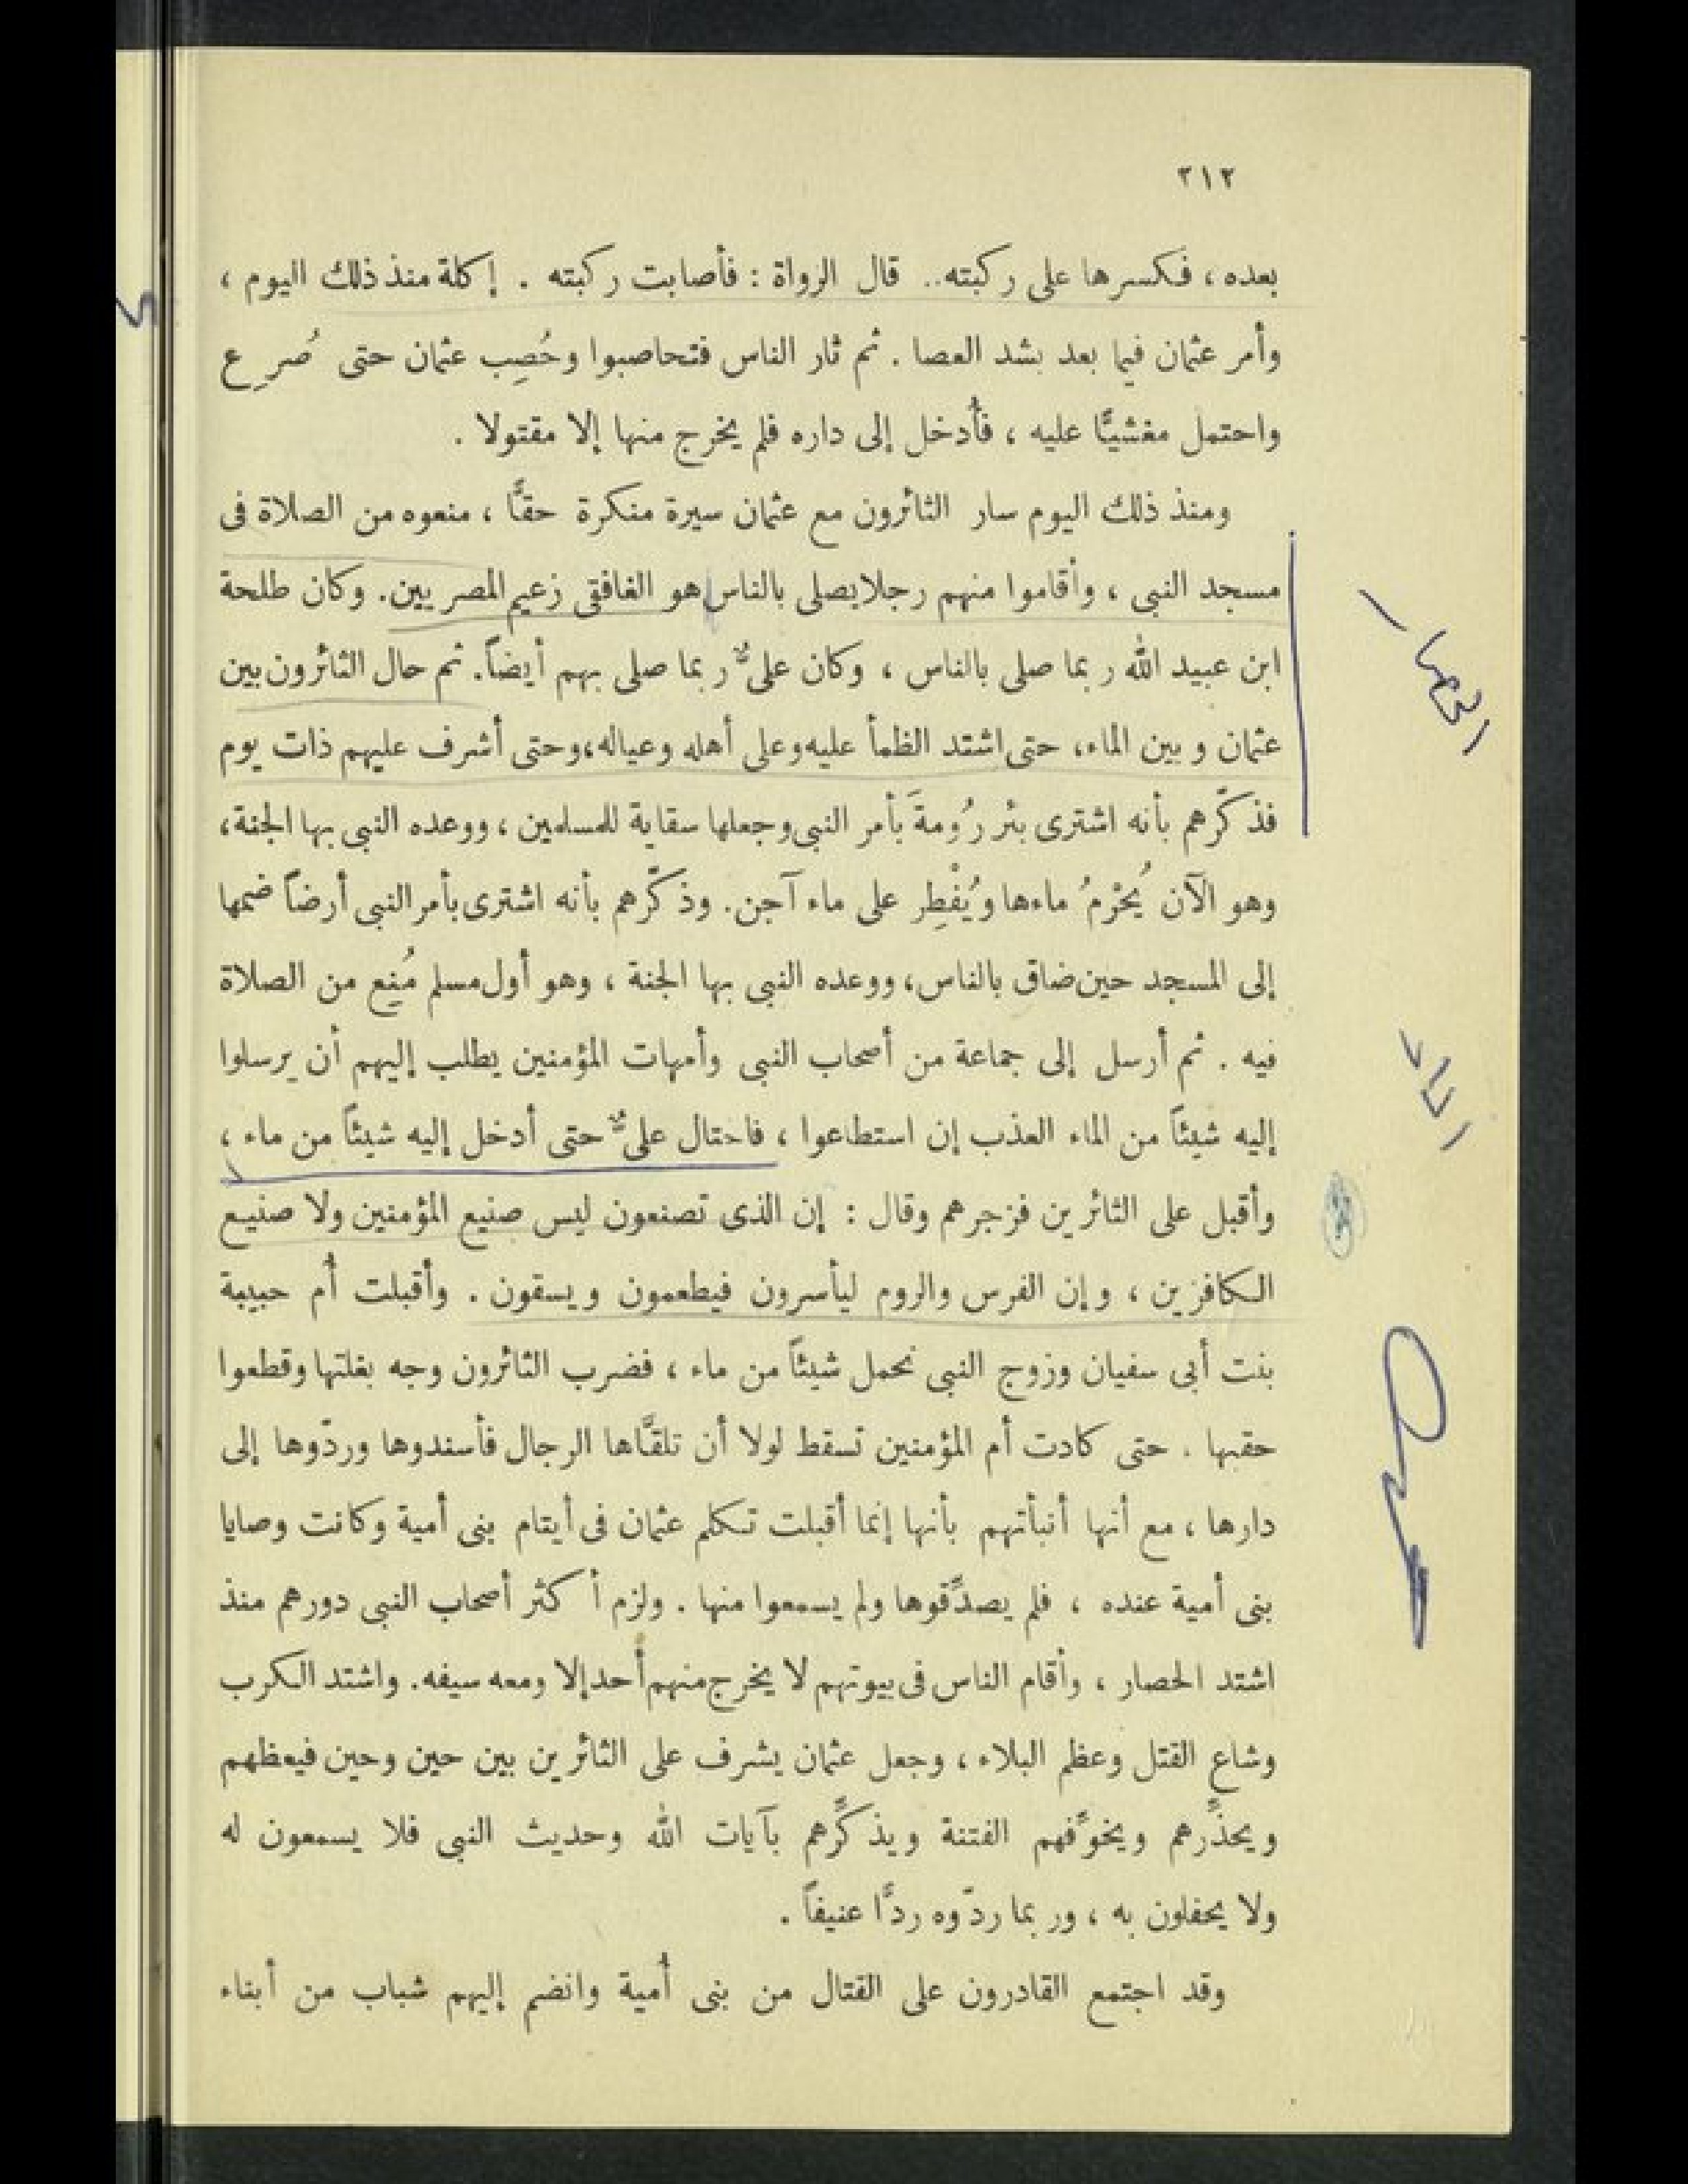 ٢١٢
بعده ، فكسرها على ركبته.. قال الرواة : فأصابت ركبته . إكلة منذ ذلك اليوم ،
وأمر عثمان فيما بعد بشد العصا . ثم ثار الناس فتحاصبوا وحُصِب عثمان حتى صُرِع
واحتمل مغشيًّا عليه ، فأُدخل إلى داره فلم يخرج منها إلا مقتولا .
ومنذ ذلك اليوم سار الثائرون مع عثمان سيرة منكرة حقًّا ، منعوه من الصلاة فى
مسجد النبى ، وأقاموا منهم رجلا يصلى بالناس هو الغافقى زعيم المصريين. وكان طلحة
ابن عبيد الله ربما صلى بالناس ، وكان علىٌّ ربما صلى بهم أيضاً. ثم حال الثائرون بين
عثمان وبين الماء، حتى اشتد الظمأ عليه وعلى أهله وعياله، وحتى أشرف عليهم ذات يوم
فذكّرهم بأنه اشترى بئر رُومةَ بأمر النبى وجعلها سقاية للمسلمين ، ووعده النبى بها الجنة،
وهو الآن يُحْرَمُ ماءها ويُفْطِر على ماء آجن. وذكّرهم بأنه اشترى بأمر النبى أرضاً ضمها
إلى المسجد حين ضاق بالناس، ووعده النبى بها الجنة ، وهو أول مسلم مُنِع من الصلاة
فيه . ثم أرسل إلى جماعة من أصحاب النبى وأمهات المؤمنين يطلب إليهم أن يرسلوا
إليه شيئاً من الماء العذب إن استطاعوا ، فاحتال علىٌّ حتى أدخل إليه شيئاً من ماء ،
وأقبل على الثائرين فزجرهم وقال : إن الذى تصنعون ليس صنيع المؤمنين ولا صنيع
الكافرين ، وإن الفرس والروم ليأسرون فيطعمون ويسقون . وأقبلت أُم حبيبة
بنت أبى سفيان وزوج النبى تحمل شيئاً من ماء ، فضرب الثائرون وجه بغلتها وقطعوا
حقبها . حتى كادت أم المؤمنين تسقط لولا أن تلقَّاها الرجال فأسندوها وردّوها إلى
دارها ، مع أنها أنبأتهم بأنها إنما أقبلت تكلم عثمان فى أيتام بنى أمية وكانت وصايا
بنى أمية عنده ، فلم يصدِّقوها ولم يسمعوا منها . ولزم أكثر أصحاب النبى دورهم منذ
اشتد الحصار ، وأقام الناس فى بيوتهم لا يخرج منهم أحد إلا ومعه سيفه. واشتد الكرب
وشاع القتل وعظم البلاء ، وجعل عثمان يشرف على الثائرين بين حين وحين فيعظهم
ويحذِّرهم ويخوِّفهم الفتنة ويذكِّرهم بآيات الله وحديث النبى فلا يسمعون له
ولا يحفلون به ، وربما ردّوه ردًّا عنيفاً .
وقد اجتمع القادرون على القتال من بنى أُمية وانضم إليهم شباب من أبناء